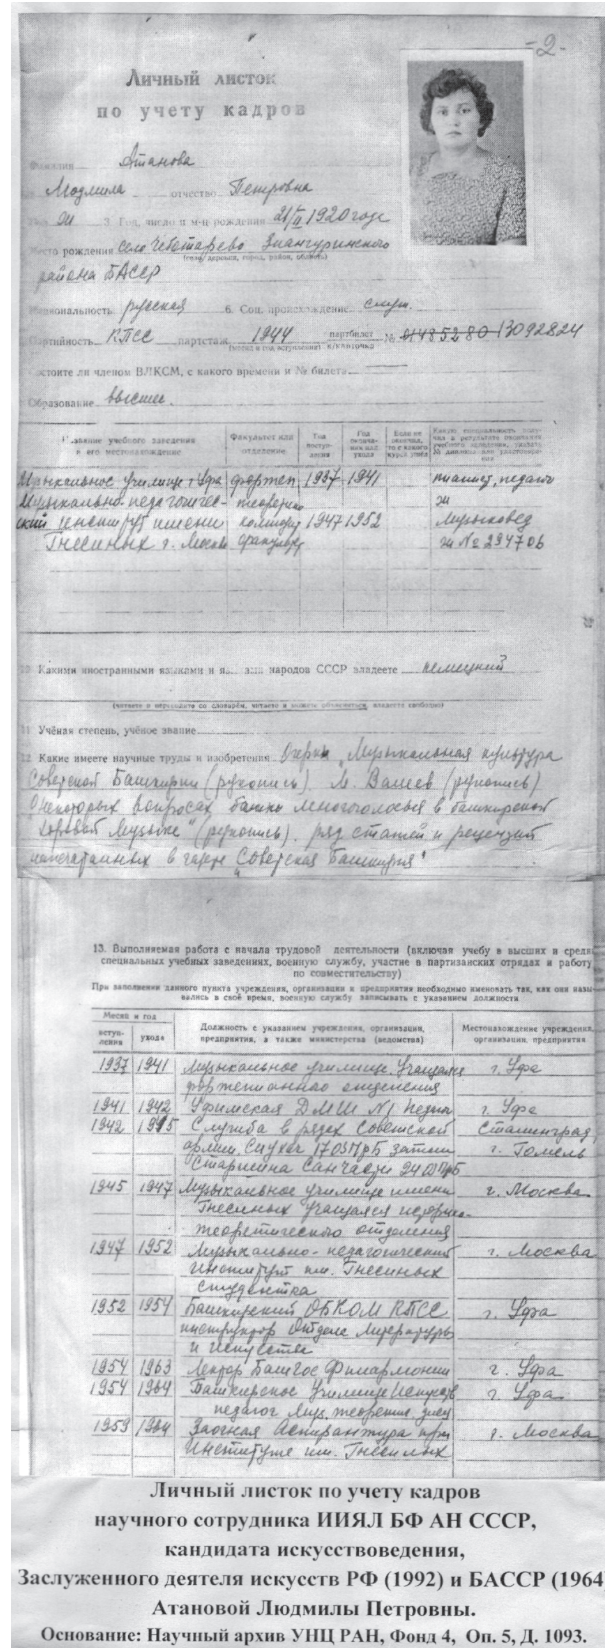 -2-
Личный листок
по учету кадров
Фамилия Атанова
Людмила отчество Петровна
Пол ж 3. Год, число и м-ц рождения 21/II 1920 года
Место рождения село Чеботарево Зиангуринского
(село, деревня, город, район, область)
района БАССР
Национальность русская 6. Соц. происхождение служ.
Партийность КПСС партстаж 1944 партбилет
кандкарточка № 01485280 13092824
Состоите ли членом ВЛКСМ, с какого времени и № билета —
Образование высшее.
Название учебного заведения и его местонахождение
Факультет или отделение
Год поступления
Год окончания или ухода
Если не окончил, то с какого курса ушел
Музыкальное училище г. Уфа фортеп 1937 1941 пианист, педагог
Музыкально-педагогичес- теоретико
кий институт имени композит 1947 1952 музыковед
Гнесиных г. Москва факультет № 294706
10. Какими иностранными языками и языками народов СССР владеете немецкий
(читаете и переводите со словарём, читаете и можете объясняться, владеете свободно)
11. Учёная степень, учёное звание
12. Какие имеете научные труды и изобретения Очерки „Музыкальная культура
Советской Башкирии (рукопись). М. Валеев (рукопись)
О некоторых вопросах многоголосья в башкирской
хоровой музыке" (рукопись). ряд статей и рецензий
напечатанных в газете „Советская Башкирия"
13. Выполняемая работа с начала трудовой деятельности (включая учебу в высших и средн
специальных учебных заведениях, военную службу, участие в партизанских отрядах и работу
по совместительству)
При заполнении данного пункта учреждения, организации и предприятия необходимо именовать так, как они назы-
вались в своё время, военную службу записывать с указанием должности
Месяц и год
вступ-
ления
ухода
Должность с указанием учреждения, организации,
предприятия, а также министерства (ведомства)
Местонахождение учреждения,
организации, предприятия
1937 1941 Музыкальное училище. Учащаяся г. Уфа
фортепианного отделения
1941 1942 Уфимская ДМШ №1 педагог г. Уфа
1942 1945 Служба в рядах Советской Сталинград,
армии. г. Гомель
Старшина
1945 1947 Музыкальное училище имени г. Москва
Гнесиных учащаяся историко-
теоретического отделения
1947 1952 Музыкально-педагогический г. Москва
институт им. Гнесиных
студентка
1952 1954 Башкирский ОБКОМ КПСС г. Уфа
инструктор Отдела литературы
и искусства
1954 1963 Лектор БашГос Филармонии г. Уфа
1954 1964 Башкирское Училище Искусств г. Уфа
педагог муз. теоретич.
1959 1964 Заочная Аспирантура при г. Москва
Институте им. Гнесиных
Личный листок по учету кадров
научного сотрудника ИИЯЛ БФ АН СССР,
кандидата искусствоведения,
Заслуженного деятеля искусств РФ (1992) и БАССР (1964
Атановой Людмилы Петровны.
Основание: Научный архив УНЦ РАН, Фонд 4, Оп. 5, Д. 1093.